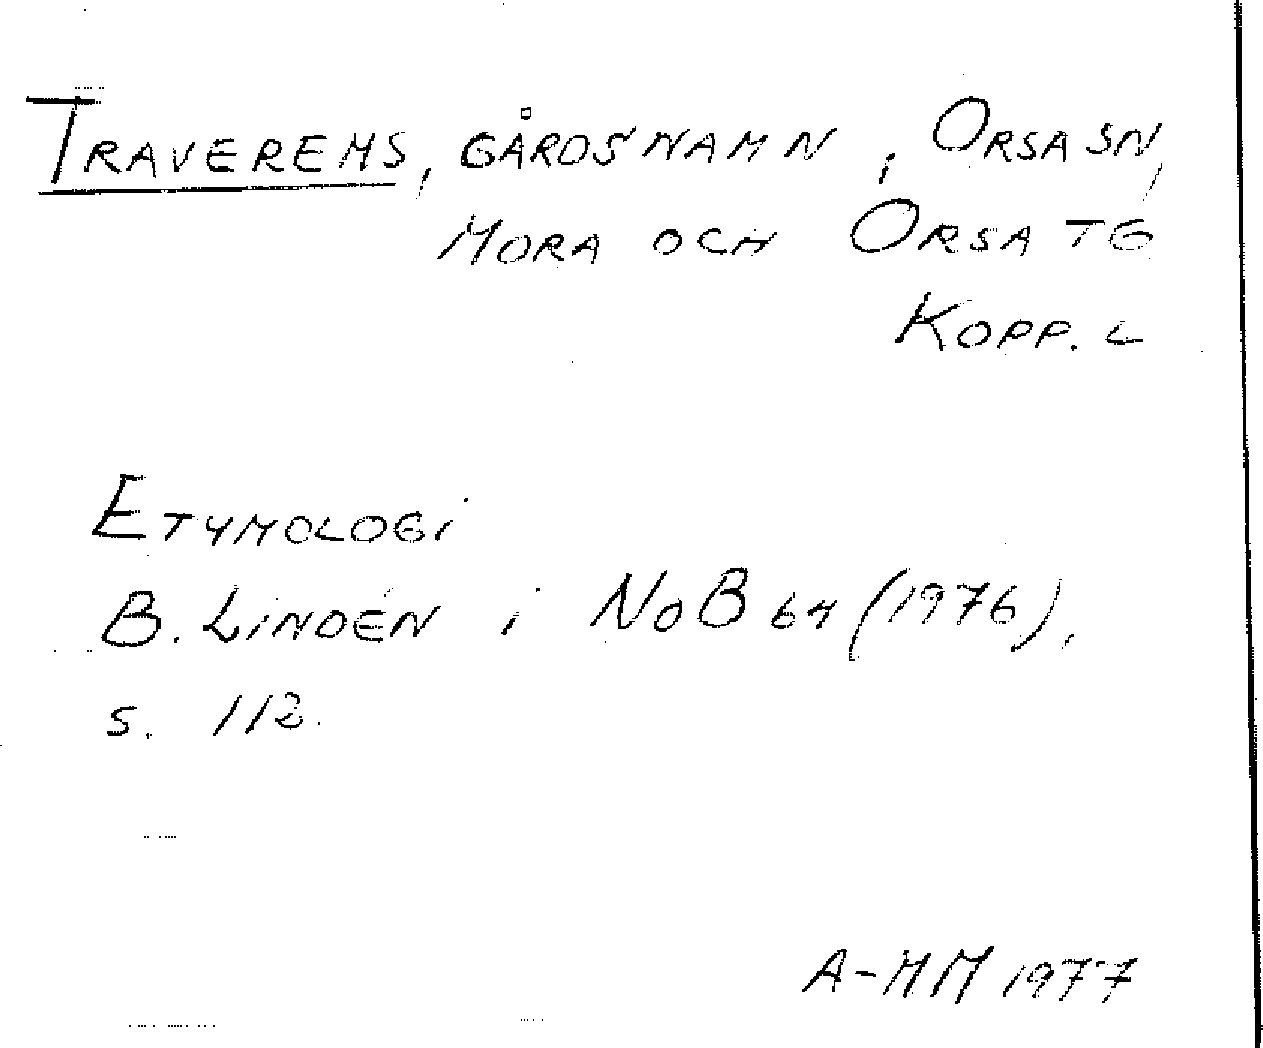 TRAVERENS, GÅRDSNAMN, i ORSA SN,
MORA OCH ORSA TG
KOPP. L
ETYMOLOGi
B. LiNDÉN i NoB 64 (1976),
s. 112.
A-MM 1977